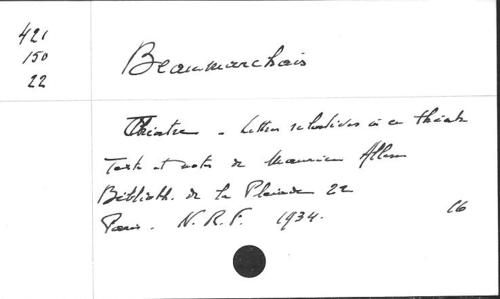 421
150
22
Beaumarchais
Théâtre - Lettres relatives à ce théâtre
Texte et notes de Maurice Allem
Biblioth. de la Pleiade 22
Paris. N. R. F. 1934.
16